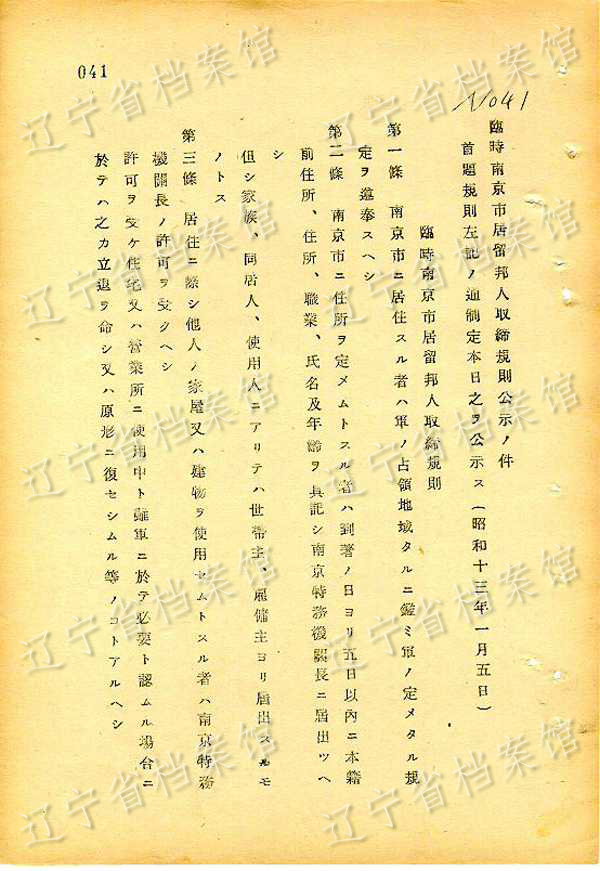 041
N041
臨時南京市居留邦人取締規則公示ノ件
首題規則左記ノ通制定本日之ヲ公示ス(昭和十三年一月五日)
臨時南京市居留邦人取締規則
第一條 南京市ニ居住スル者ハ軍ノ占領地域タルニ鑑ミ軍ノ定メタル規
定ヲ遵奉スヘシ
第二條 南京市ニ住所ヲ定メムトスル者ハ到著ノ日ヨリ五日以內ニ本籍
前住所、住所、職業、氏名及年齡ヲ具記シ南京特務機關長ニ屆出ツヘ
シ
但シ家族、同居人、使用人ニアリテハ世帶主、雇傭主ヨリ屆出スルモ
ノトス
第三條 居住ニ際シ他人ノ家屋又ハ建物ヲ使用セムトスル者ハ南京特務
機關長ノ許可ヲ受クヘシ
許可ヲ受ケ住宅又ハ營業所ニ使用中ト雖軍ニ於テ必要ト認ムル場合ニ
於テハ之カ立退ヲ命シ又ハ原形ニ復セシムル等ノコトアルヘシ
辽宁省档案馆
辽宁省档案馆
辽宁省档案馆
辽宁省档案馆
辽宁省档案馆
辽宁省档案馆
辽宁省档案馆
辽宁省档案馆
辽宁省档案馆
辽宁省档案馆